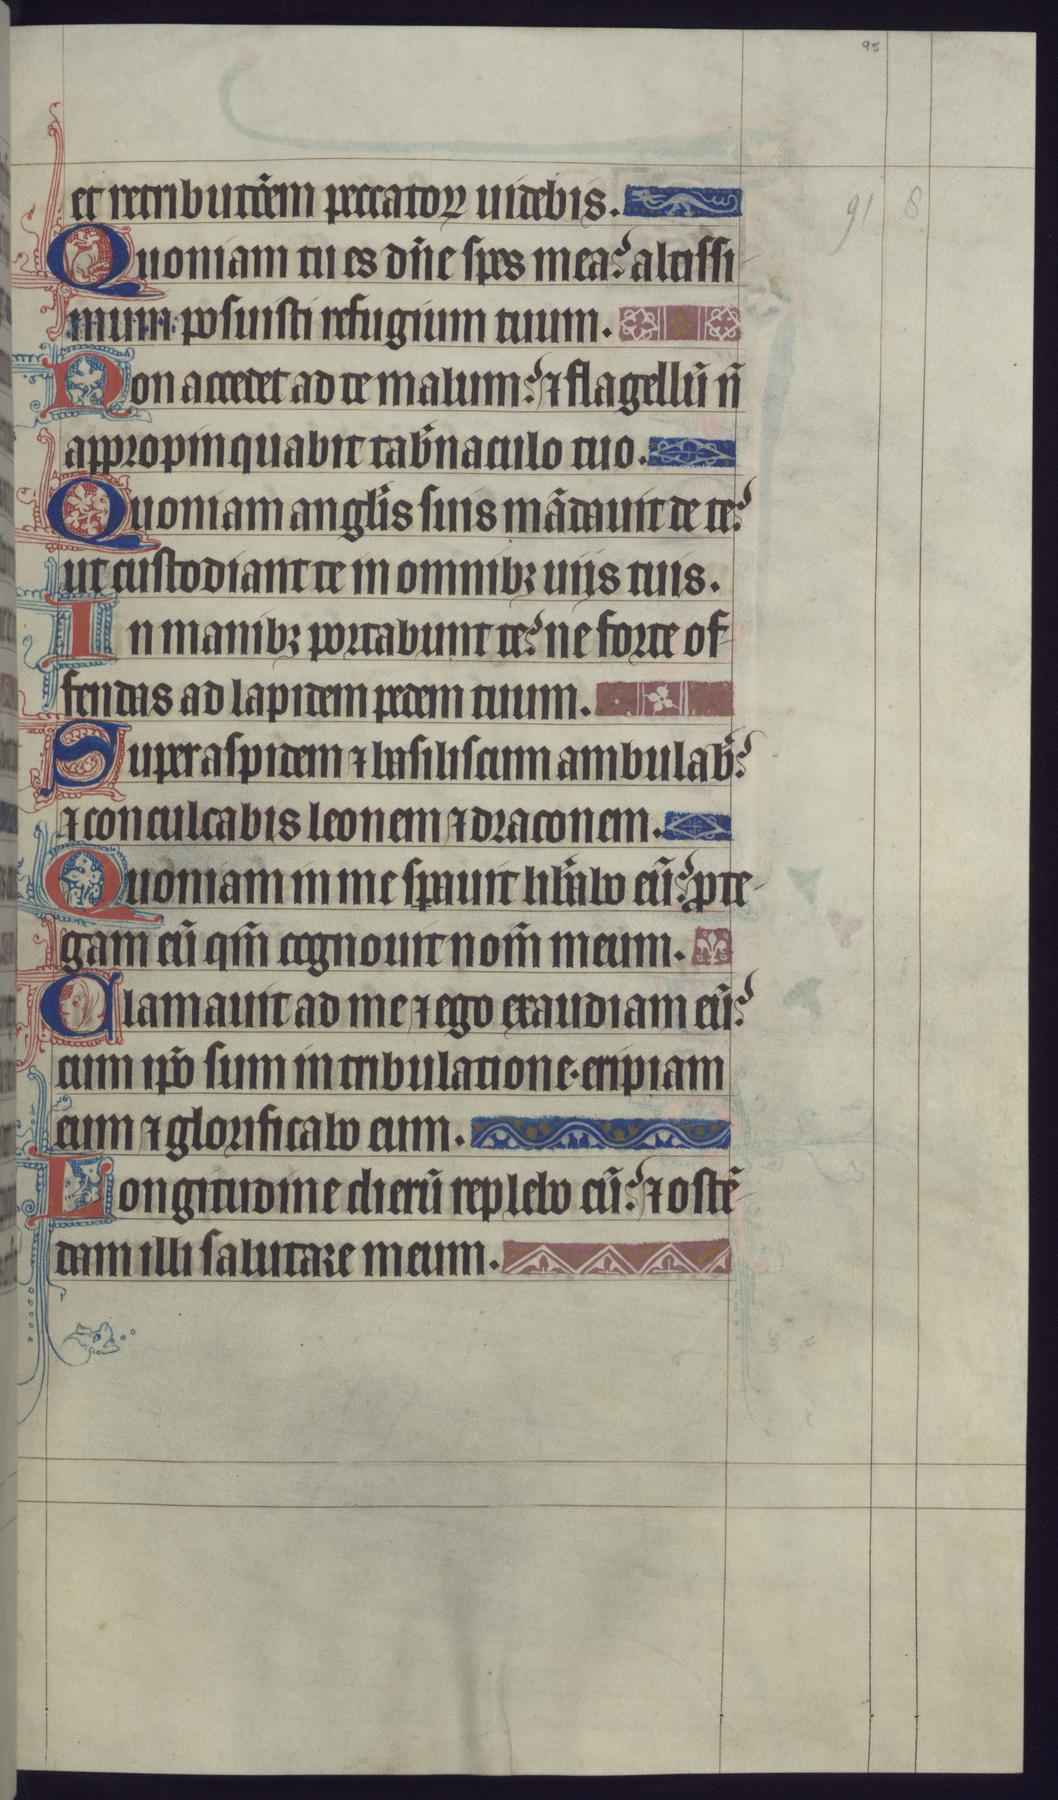 95
91 8
et retributōem peccatoꝝ uidebis.
Quoniam tu es dn̄e spes mea: altissi-
mum posuisti refugium tuum.
Non accedet ad te malum: ⁊ flagellū n̄
appropinquabit tab̄naculo tuo.
Quoniam angl̄is suis mādauit de te:
ut custodiant te in omnibꝫ uijs tuis.
In manibꝫ portabunt te: ne forte of-
fendas ad lapidem pedem tuum.
Super aspidem ⁊ basiliscum ambulab̄:
⁊ conculcabis leonem ⁊ draconem.
Quoniam in me sꝑauit lib̄abo eū: ꝓte-
gam eū qm̄ cognouit nom̄ meum.
Clamauit ad me ⁊ ego exaudiam eū:
cum ip̄o sum in tribulatione· eripiam
eum ⁊ glorificabo eum.
Longitudine dierū replebo eū: ⁊ ostē-
dam illi salutare meum.